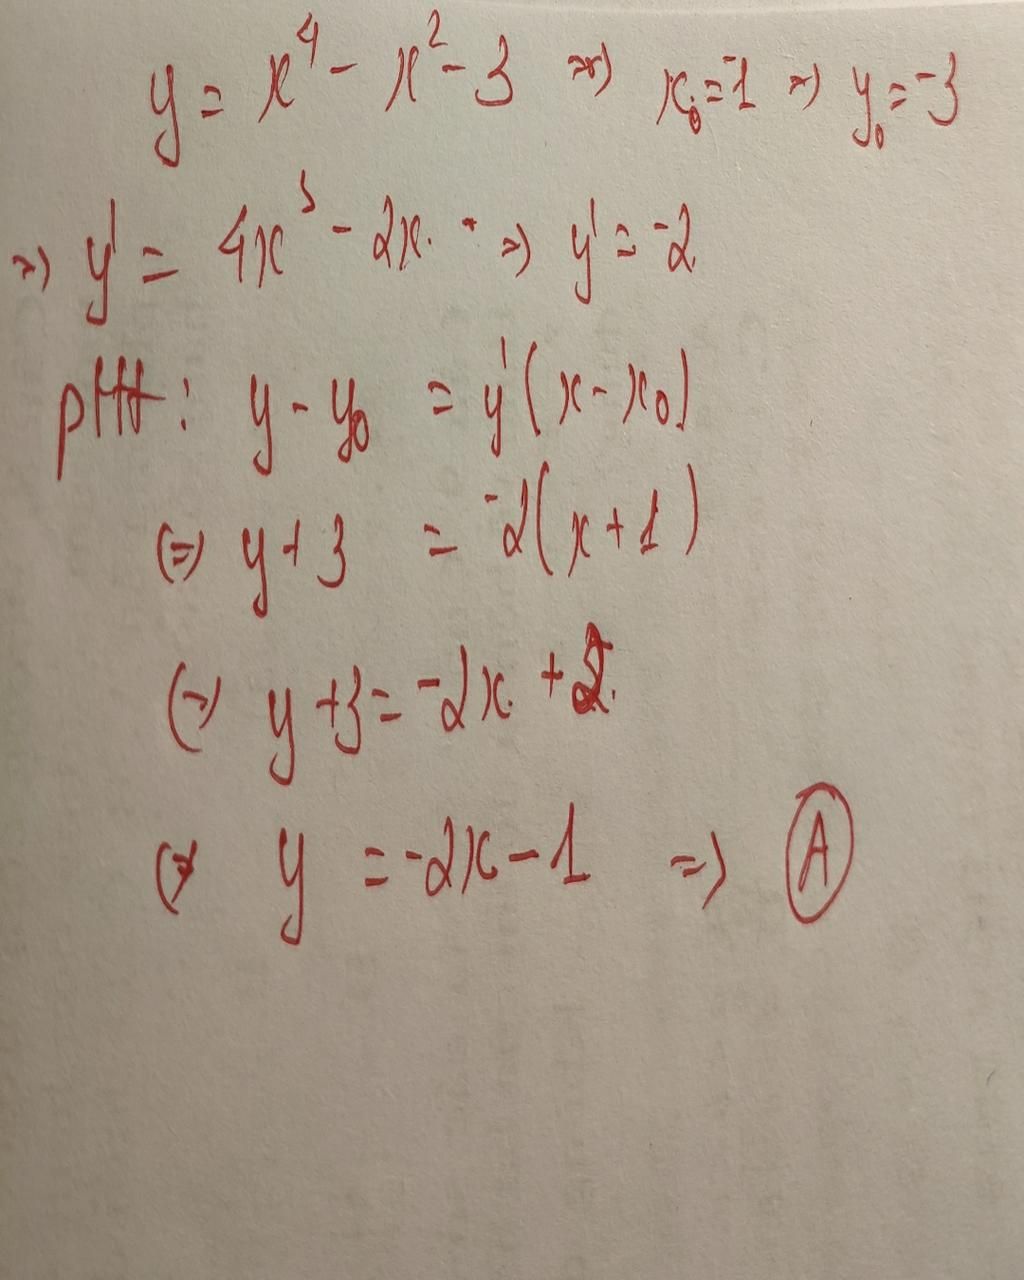 y = x⁴ - x² - 3 => x₀ = -1 => y₀ = -3
=> y' = 4x³ - 2x. => y' = -2
pttt: y - y₀ = y'(x - x₀)
(=) y + 3 = -2(x + 1)
(=) y + 3 = -2x + 2.
(=) y = -2x - 1 => A